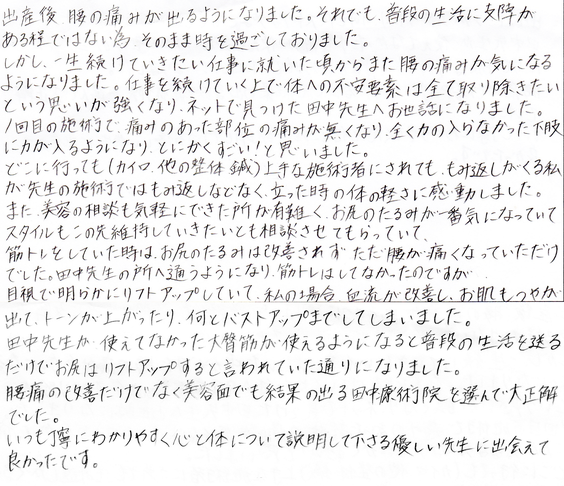 出産後、腰の痛みが出るようになりました。それでも、普段の生活に支障が
ある程ではない為、そのまま時を過ごしておりました。
しかし、一生続けていきたい仕事に就いた頃からまた腰の痛みが気になる
ようになりました。仕事を続けていく上で体への不安要素は全て取り除きたい
という思いが強くなり、ネットで見つけた田中先生へお世話になりました。
1回目の施術で、痛みのあった部位の痛みが無くなり、全く力の入らなかった下肢
に力が入るようになり、とにかくすごい!と思いました。
どこに行っても(カイロ、他の整体、鍼)上手な施術者にされても、もみ返しがくる私
が先生の施術ではもみ返しなどなく、立った時の体の軽さに感動しました。
また、美容の相談も気軽にできた所が有難く、お尻のたるみが一番気になっていて
スタイルもこの先維持していきたいとも相談させてもらっていて、
筋トレをしていた時は、お尻のたるみは改善されず ただ腰が痛くなっていただけ
でした。田中先生の所へ通うようになり、筋トレはしてなかったのですが
目視で明らかにリフトアップしていて、私の場合、血流が改善し、お肌もつやが
出て、トーンが上がったり、何とバストアップまでしてしまいました。
田中先生が、使えてなかった大臀筋が使えるようになると普段の生活を送る
だけでお尻はリフトアップすると言われていた通りになりました。
腰痛の改善だけでなく美容面でも結果の出る田中療術院を選んで大正解
でした。
いつも丁寧にわかりやすく心と体について説明して下さる優しい先生に出会えて
良かったです。